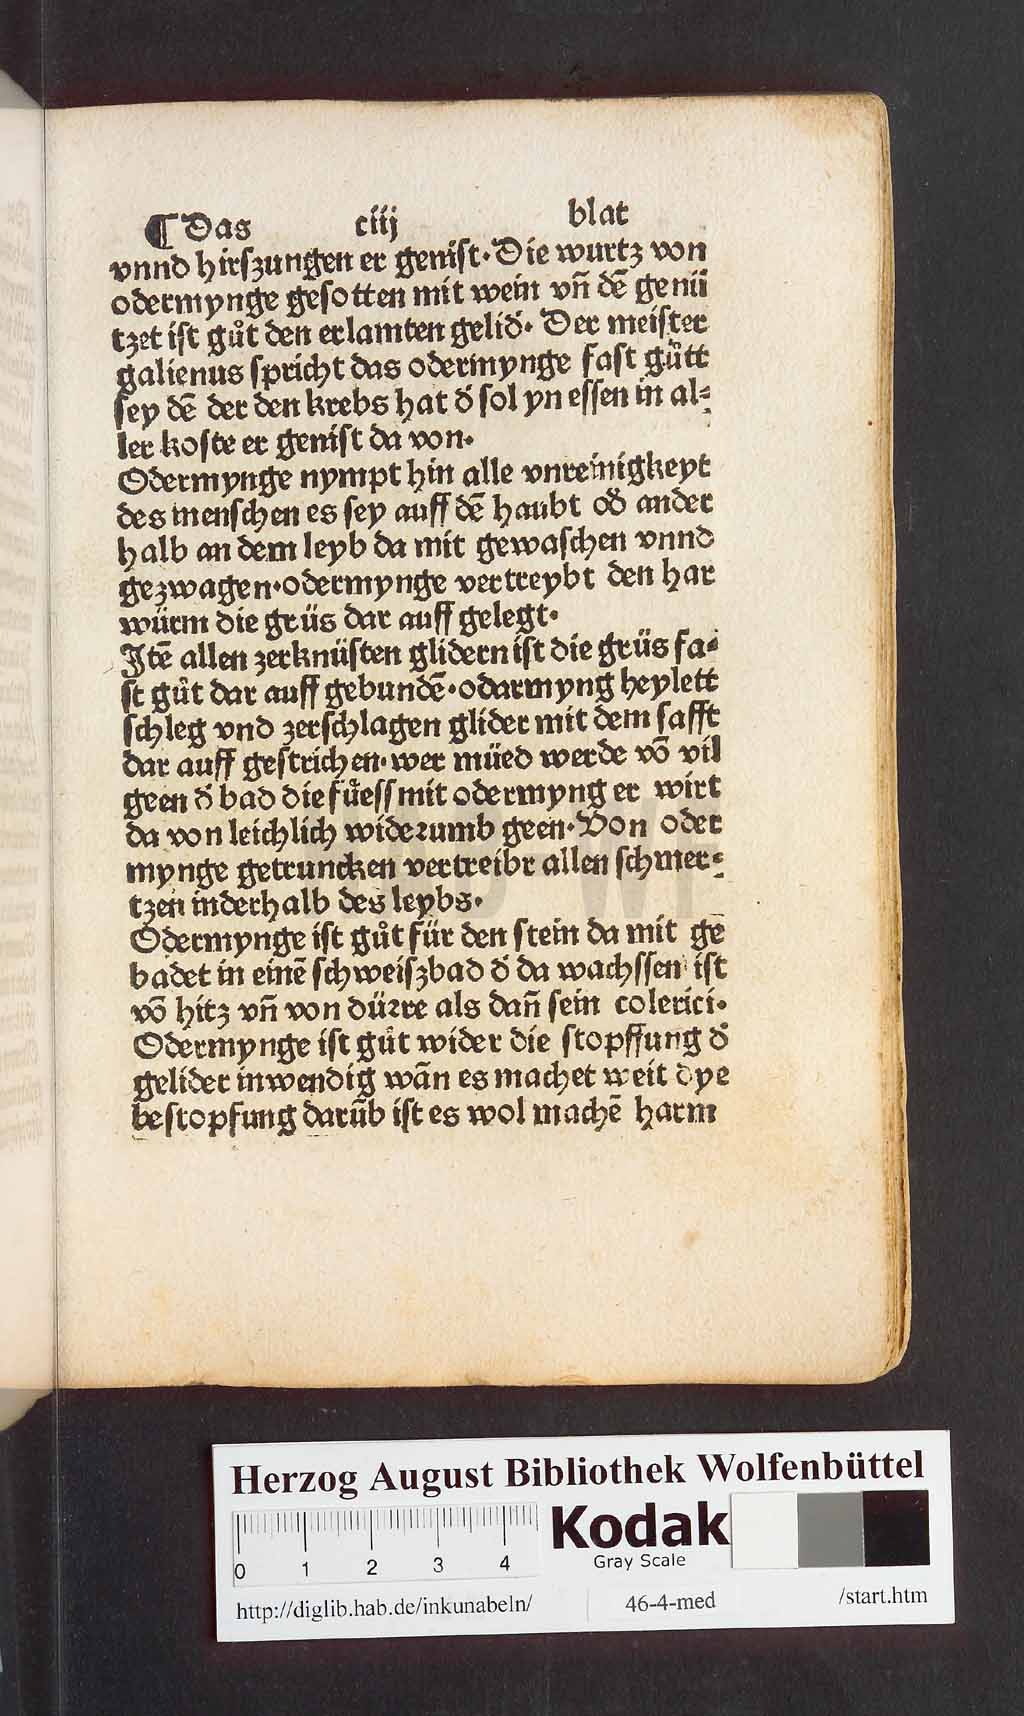 ¶ Das ciij blat
vnnd hirſzungen er geniſt· Die wurtz von
odermynge geſotten mit wein vn̄ dē genü
tzet iſt gůt den erlamten gelid̕· Der meiſter
galienus ſpricht das odermynge faſt gůtt
ſey dē der den krebs hat d̕ ſol yn eſſen in al⸗
ler koſte er geniſt da von·
Odermynge nympt hin alle vnreinigkeyt
des menſchen es ſey auff dē haubt od̕ ander
halb an dem leyb da mit gewaſchen vnnd
gezwagen·odermynge vertreybt den har
würm die grüs dar auff gelegt·
Jtē allen zerknüſten glidern iſt die grüs fa⸗
ſt gůt dar auff gebundē·odarmyng heylett
ſchleg vnd zerſchlagen glider mit dem ſafft
dar auff geſtrichen·wer müed werde vō vil
geen d̕ bad die fůeſſ mit odermyng er wirt
da von leichlich wideꝛumb geen·Von oder
mynge getruncken vertreibr allen ſchmer⸗
tzen inderhalb des leybs·
Odermynge iſt gůt für den ſtein da mit ge
badet in einē ſchweiſzbad d̕ da wachſſen iſt
vō hitz vn̄ von düꝛre als dan̄ ſein colerici·
Odermynge iſt gůt wider die ſtopffung d̕
gelider inwendig wān es machet weit dye
beſtopfung darūb iſt es wol machē harm
Herzog August Bibliothek Wolfenbüttel
0 1 2 3 4
Kodak
Gray Scale
http://diglib.hab.de/inkunabeln/ 46-4-med /start.htm